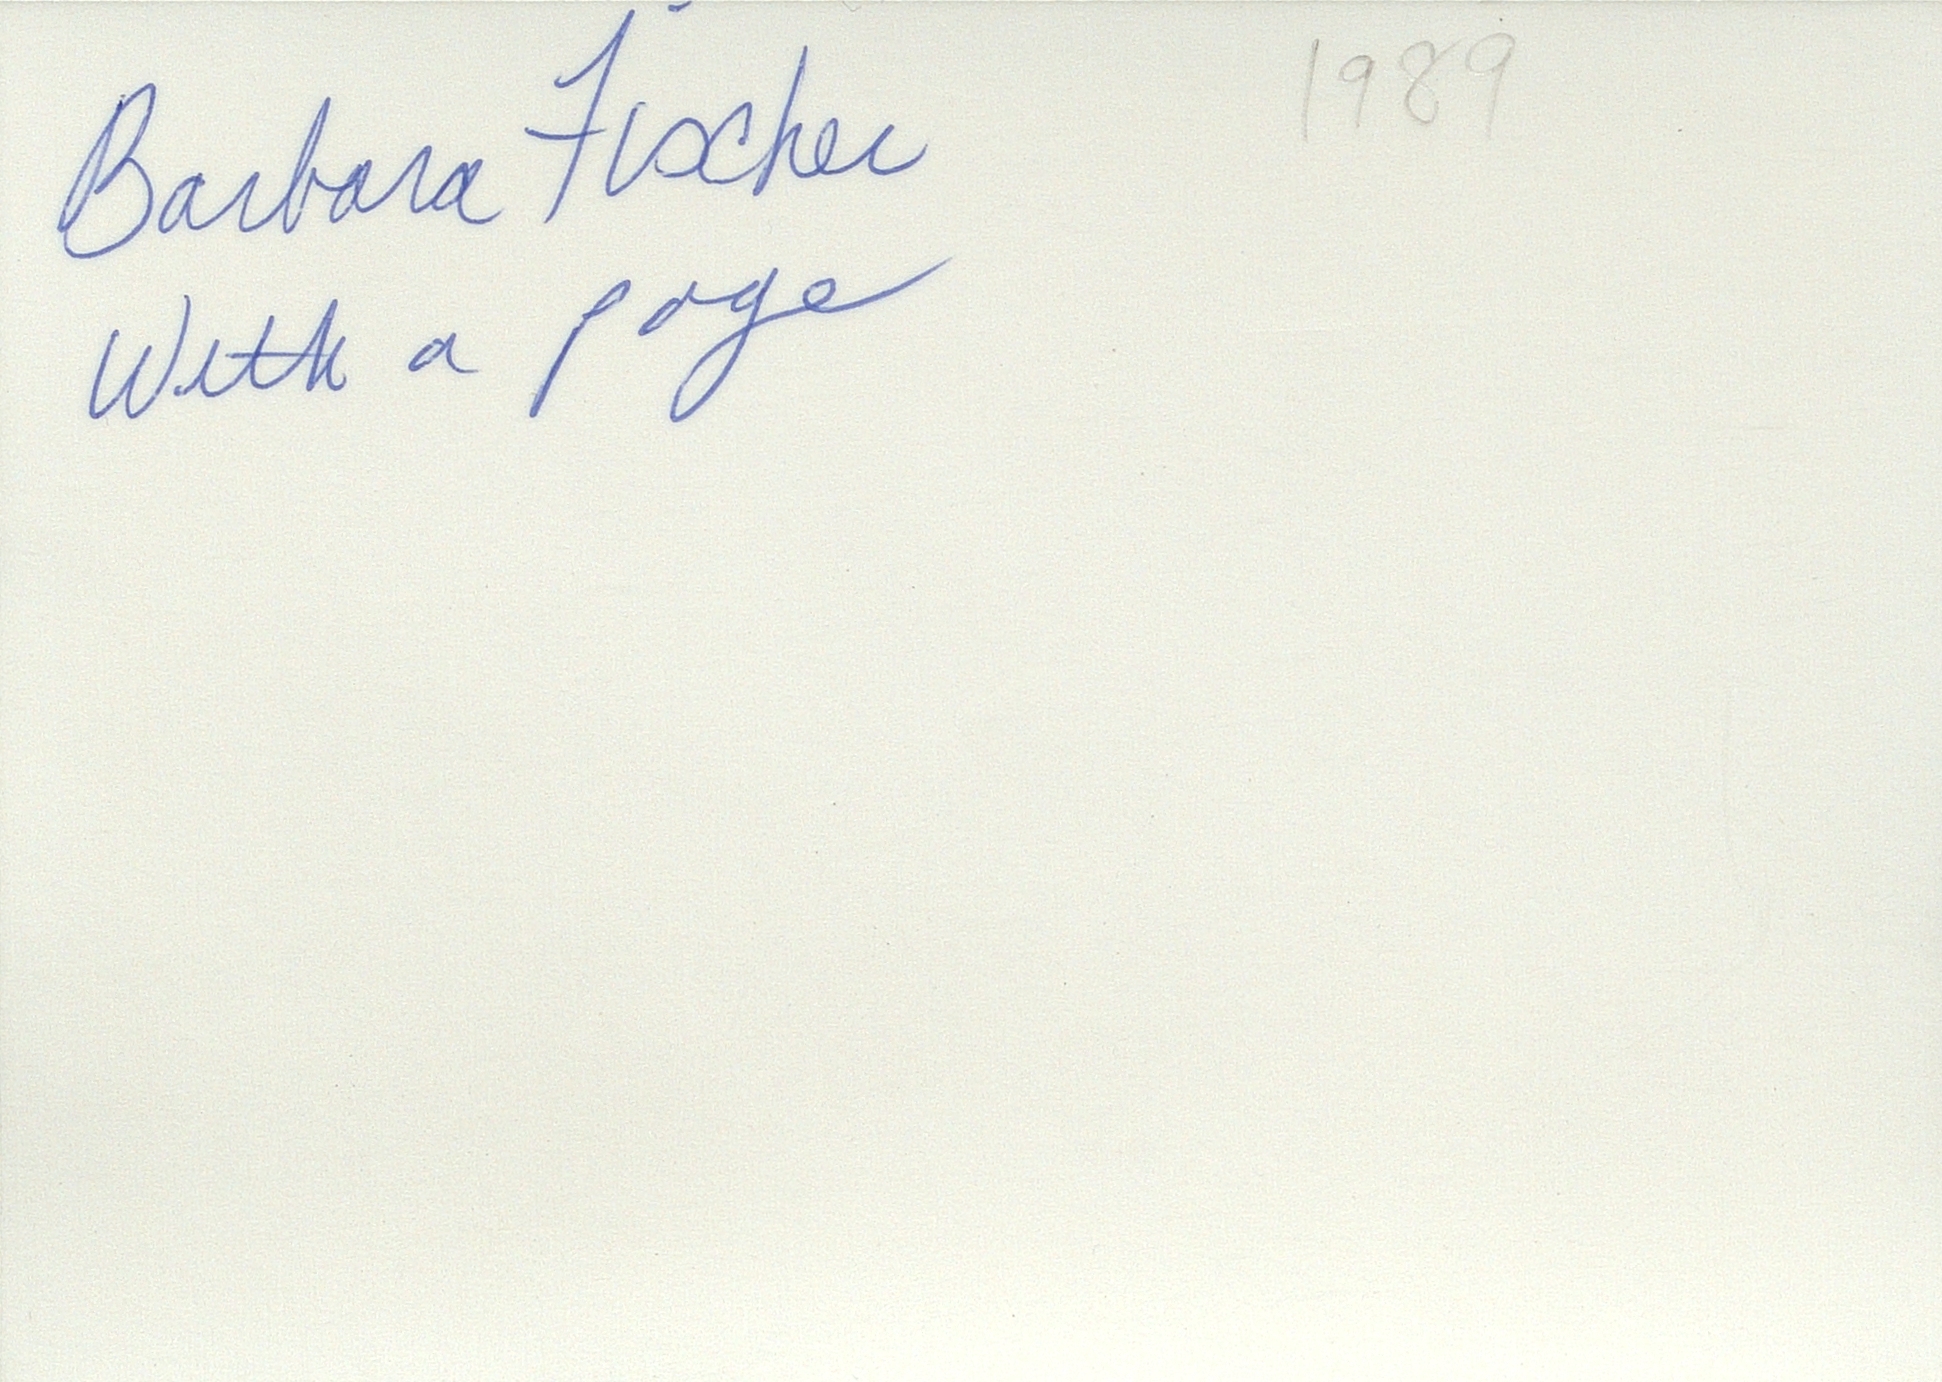 Barbara Fischer 1989
With a page